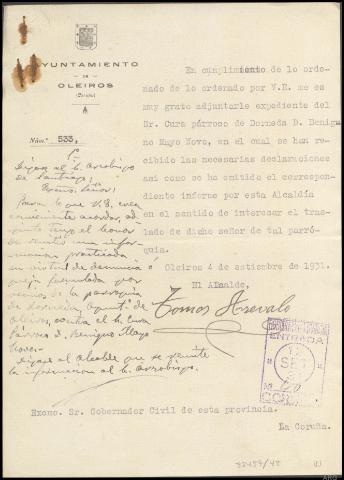 AYUNTAMIENTO
DE
OLEIROS
(Coruña)
Núm.º 533.
En cumplimiento de lo orde-
nado de lo ordenado por V.E. me es
muy grato adjuntarle expediente del
Sr. Cura párroco de Dorneda D. Benig-
no Mayo Novo, en el cual se han re-
cibido las necesarias declaraciones
asi como se ha emitido el correspondi-
ente informe por esta Alcaldía
en el sentido de interesar el tras-
lado de dicho señor de tal parró-
quia.
Oleiros 4 de setiembre de 1931.
El Alcalde,
Tomos Arevalo
Dígase al
de Santiago:
Excmo. Señor:
Para lo que V.E. crea
conveniente acordar, ad-
junto tengo el honor
de remitir una infor-
mación practicada
en virtud de denuncia
formulada por
vecinos de la parroquia
de Dorneda,
Oleiros, contra el Cura
Párroco D. Benigno Mayo
Novo.
Dígase al Alcalde que se remite
la información al
ENTRADA
SET
Excmo. Sr. Gobernador Civil de esta provincia.
La Coruña.